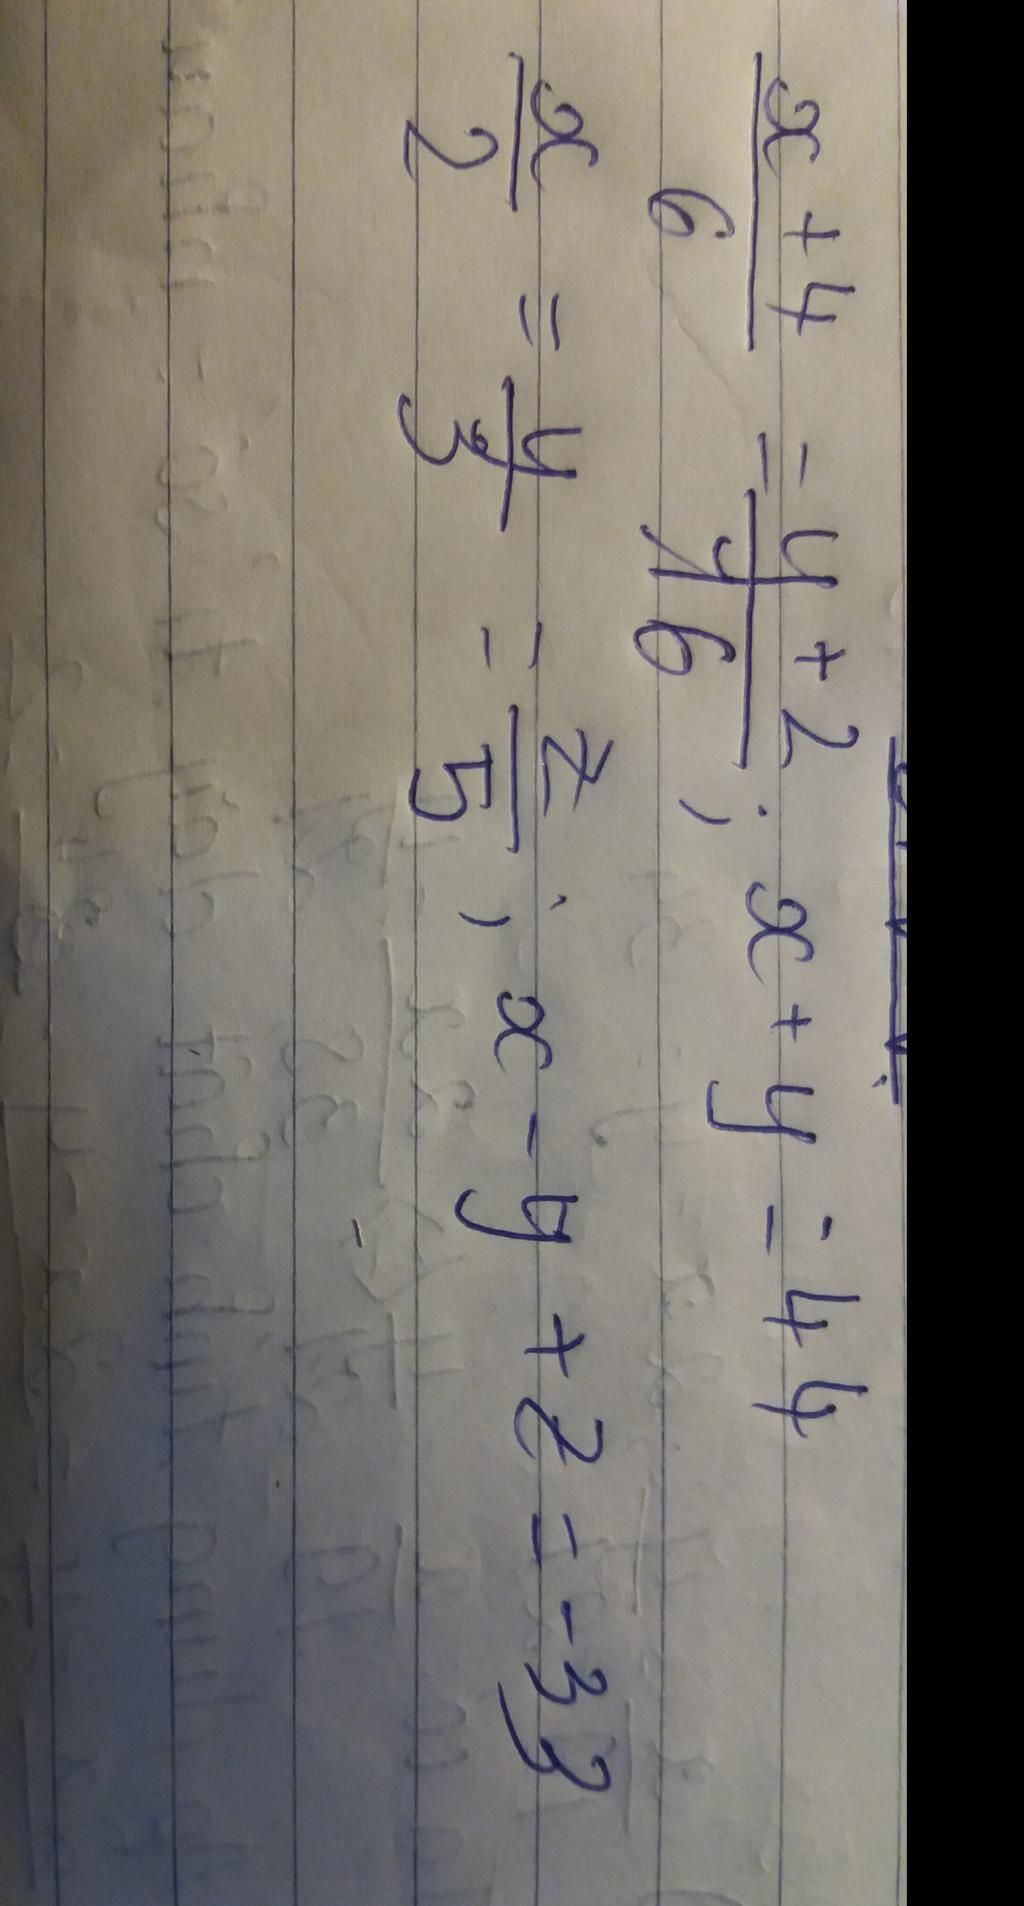 x + 4 / 6 = y + 2 / 16 ; x + y = 44
x / 2 = y / 3 = z / 5 ; x - y + z = -33